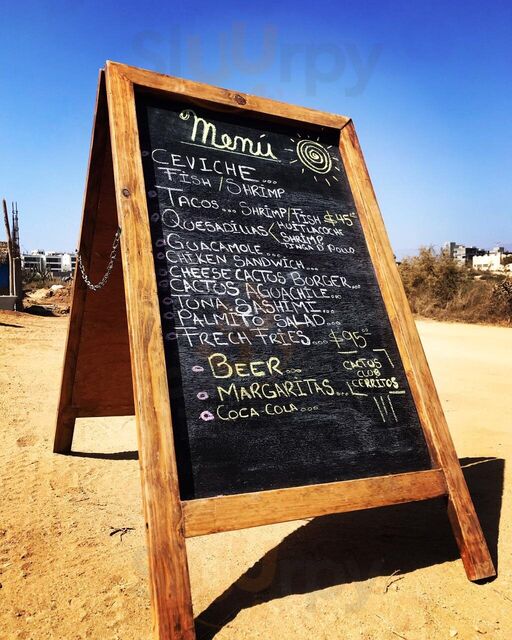 Sluurpy
Menú
CEVICHE...
FISH/SHRIMP
TACOS... SHRIMP/FISH $45.00
QUESADILLAS < HUITLACOCHE
SHRIMP
TINGA D POLLO
GUACAMOLE...
CHIKEN SANDWICH...
CHEESE CACTOS BURGER...
CACTOS AGUACHILE...
TONA SASHIMI...
PALMITO SALAD...
TRECH FRIES... $95.00
BEER...
MARGARITAS...
COCA-COLA...
CACTOS
CLUB
CERRITOS
Sluurpy